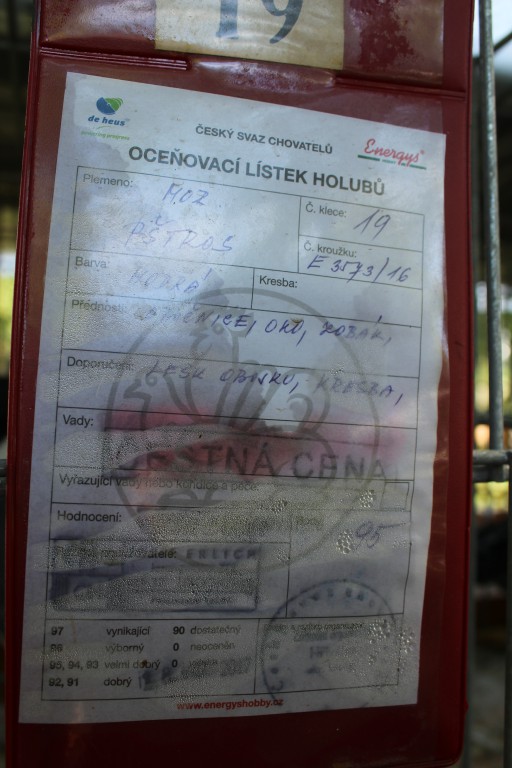 19
de heus
ČESKÝ SVAZ CHOVATELŮ
Energys
OCEŇOVACÍ LÍSTEK HOLUBŮ
Plemeno: MOZ.
PŠTROS
Č. klece: 19
Č. kroužku:
E 3573/16
Barva: MODRÁ
Kresba:
Přednosti: OKO, ZOBÁK,
Doporučení: LESK OBOJKU, KRESBA,
Vady:
ČESTNÁ CENA
Vyřazující vady nebo kondice a péče:
Hodnocení:
95
97 vynikající 90 dostatečný
96 výborný 0 neoceněn
95, 94, 93 velmi dobrý 0
92, 91 dobrý
www.energyshobby.cz